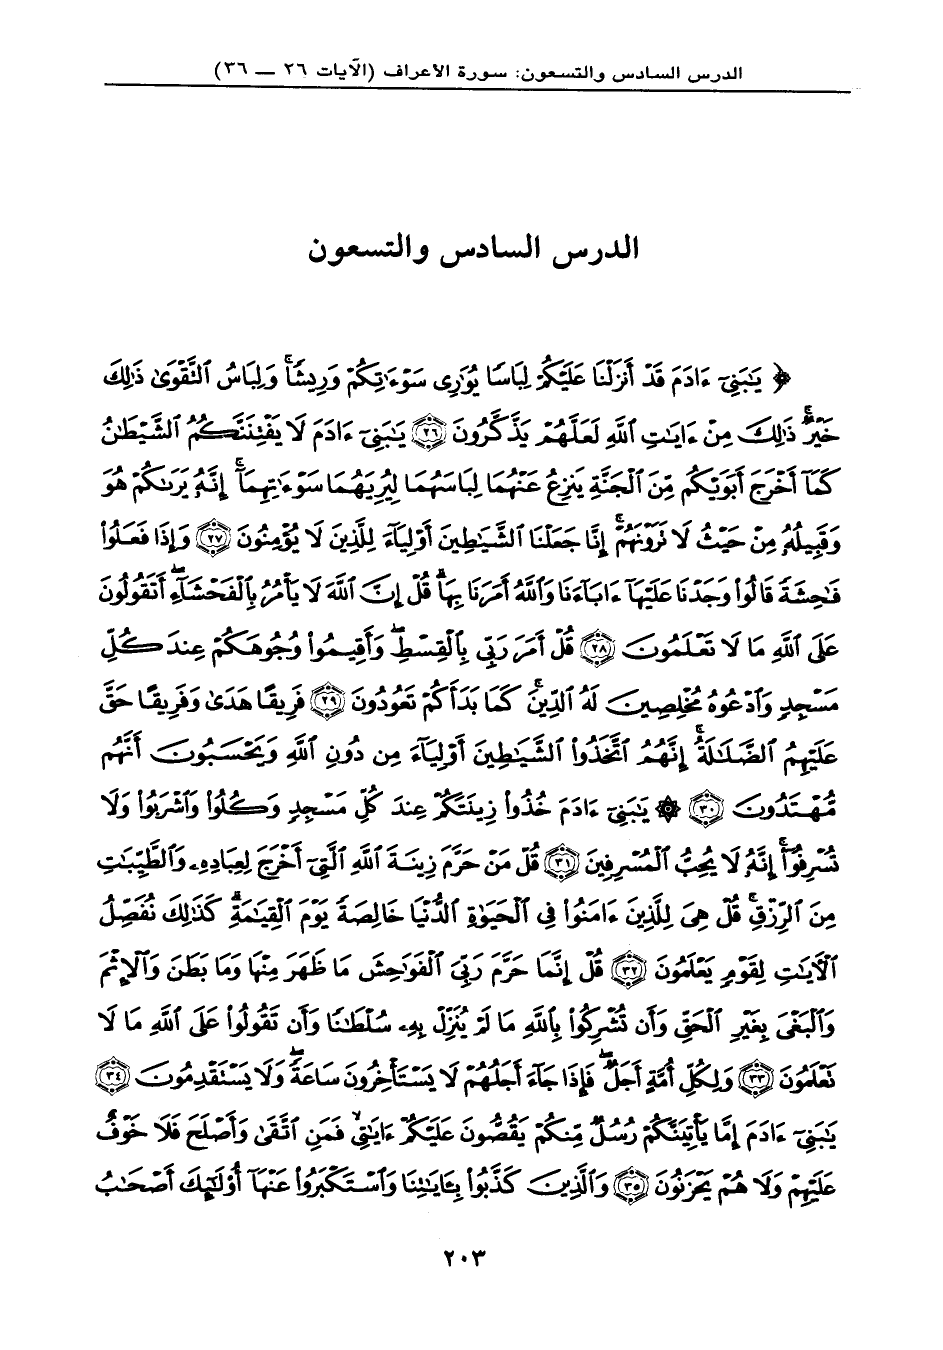 الدرس السادس والتسعون: سورة الأعراف (الآيات ٢٦ — ٣٦)
الدرس السادس والتسعون
﴿ يَٰبَنِىٓ ءَادَمَ قَدْ أَنزَلْنَا عَلَيْكُمْ لِبَاسًا يُوَٰرِى سَوْءَٰتِكُمْ وَرِيشًا ۖ وَلِبَاسُ ٱلتَّقْوَىٰ ذَٰلِكَ
خَيْرٌ ۚ ذَٰلِكَ مِنْ ءَايَٰتِ ٱللَّهِ لَعَلَّهُمْ يَذَّكَّرُونَ ٢٦ يَٰبَنِىٓ ءَادَمَ لَا يَفْتِنَنَّكُمُ ٱلشَّيْطَٰنُ
كَمَآ أَخْرَجَ أَبَوَيْكُم مِّنَ ٱلْجَنَّةِ يَنزِعُ عَنْهُمَا لِبَاسَهُمَا لِيُرِيَهُمَا سَوْءَٰتِهِمَآ ۗ إِنَّهُۥ يَرَىٰكُمْ هُوَ
وَقَبِيلُهُۥ مِنْ حَيْثُ لَا تَرَوْنَهُمْ ۗ إِنَّا جَعَلْنَا ٱلشَّيَٰطِينَ أَوْلِيَآءَ لِلَّذِينَ لَا يُؤْمِنُونَ ٢٧ وَإِذَا فَعَلُوا۟
فَٰحِشَةً قَالُوا۟ وَجَدْنَا عَلَيْهَآ ءَابَآءَنَا وَٱللَّهُ أَمَرَنَا بِهَا ۗ قُلْ إِنَّ ٱللَّهَ لَا يَأْمُرُ بِٱلْفَحْشَآءِ ۖ أَتَقُولُونَ
عَلَى ٱللَّهِ مَا لَا تَعْلَمُونَ ٢٨ قُلْ أَمَرَ رَبِّى بِٱلْقِسْطِ ۖ وَأَقِيمُوا۟ وُجُوهَكُمْ عِندَ كُلِّ
مَسْجِدٍ وَٱدْعُوهُ مُخْلِصِينَ لَهُ ٱلدِّينَ ۚ كَمَا بَدَأَكُمْ تَعُودُونَ ٢٩ فَرِيقًا هَدَىٰ وَفَرِيقًا حَقَّ
عَلَيْهِمُ ٱلضَّلَٰلَةُ ۗ إِنَّهُمُ ٱتَّخَذُوا۟ ٱلشَّيَٰطِينَ أَوْلِيَآءَ مِن دُونِ ٱللَّهِ وَيَحْسَبُونَ أَنَّهُم
مُّهْتَدُونَ ٣٠ ۞ يَٰبَنِىٓ ءَادَمَ خُذُوا۟ زِينَتَكُمْ عِندَ كُلِّ مَسْجِدٍ وَكُلُوا۟ وَٱشْرَبُوا۟ وَلَا
تُسْرِفُوٓا۟ ۚ إِنَّهُۥ لَا يُحِبُّ ٱلْمُسْرِفِينَ ٣١ قُلْ مَنْ حَرَّمَ زِينَةَ ٱللَّهِ ٱلَّتِىٓ أَخْرَجَ لِعِبَادِهِۦ وَٱلطَّيِّبَٰتِ
مِنَ ٱلرِّزْقِ ۚ قُلْ هِىَ لِلَّذِينَ ءَامَنُوا۟ فِى ٱلْحَيَوٰةِ ٱلدُّنْيَا خَالِصَةً يَوْمَ ٱلْقِيَٰمَةِ ۗ كَذَٰلِكَ نُفَصِّلُ
ٱلْءَايَٰتِ لِقَوْمٍ يَعْلَمُونَ ٣٢ قُلْ إِنَّمَا حَرَّمَ رَبِّىَ ٱلْفَوَٰحِشَ مَا ظَهَرَ مِنْهَا وَمَا بَطَنَ وَٱلْإِثْمَ
وَٱلْبَغْىَ بِغَيْرِ ٱلْحَقِّ وَأَن تُشْرِكُوا۟ بِٱللَّهِ مَا لَمْ يُنَزِّلْ بِهِۦ سُلْطَٰنًا وَأَن تَقُولُوا۟ عَلَى ٱللَّهِ مَا لَا
تَعْلَمُونَ ٣٣ وَلِكُلِّ أُمَّةٍ أَجَلٌ ۖ فَإِذَا جَآءَ أَجَلُهُمْ لَا يَسْتَأْخِرُونَ سَاعَةً ۖ وَلَا يَسْتَقْدِمُونَ ٣٤
يَٰبَنِىٓ ءَادَمَ إِمَّا يَأْتِيَنَّكُمْ رُسُلٌ مِّنكُمْ يَقُصُّونَ عَلَيْكُمْ ءَايَٰتِى ۙ فَمَنِ ٱتَّقَىٰ وَأَصْلَحَ فَلَا خَوْفٌ
عَلَيْهِمْ وَلَا هُمْ يَحْزَنُونَ ٣٥ وَٱلَّذِينَ كَذَّبُوا۟ بِـَٔايَٰتِنَا وَٱسْتَكْبَرُوا۟ عَنْهَآ أُو۟لَٰٓئِكَ أَصْحَٰبُ
٢٠٣